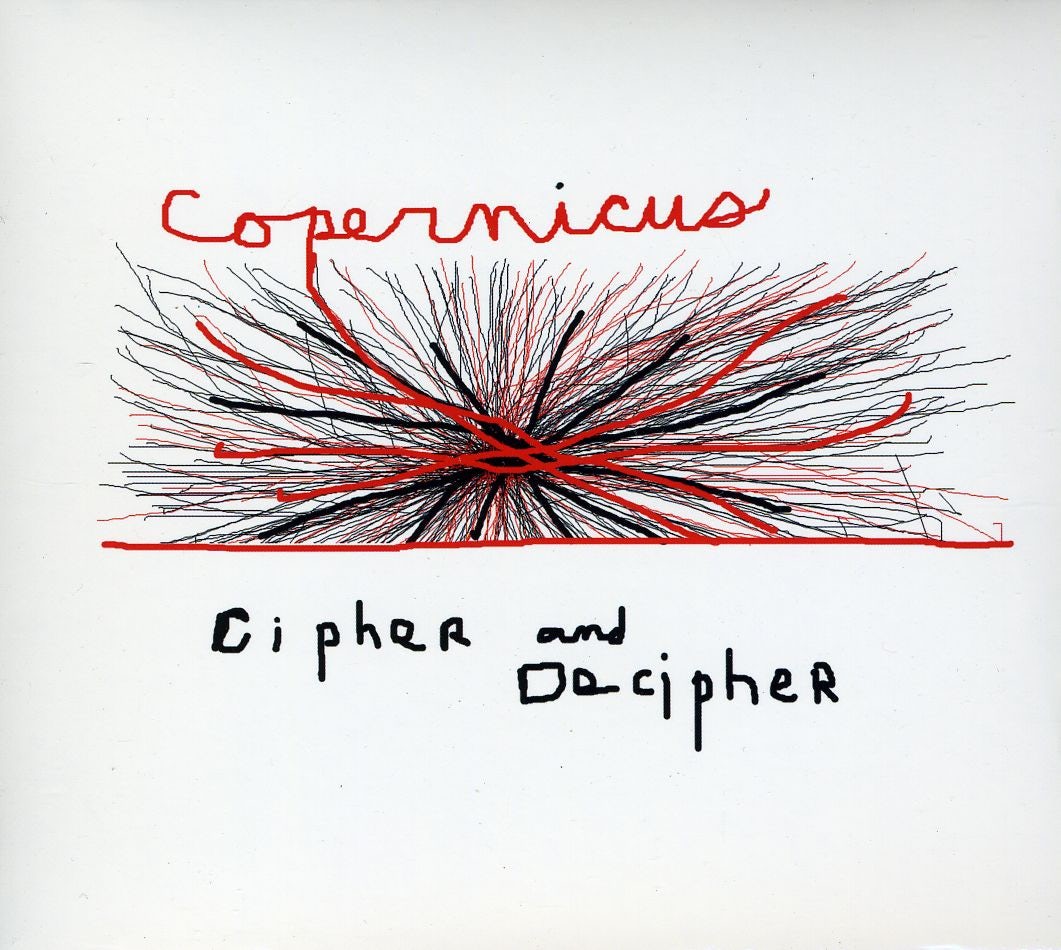 Copernicus
CipheR and
DecipheR